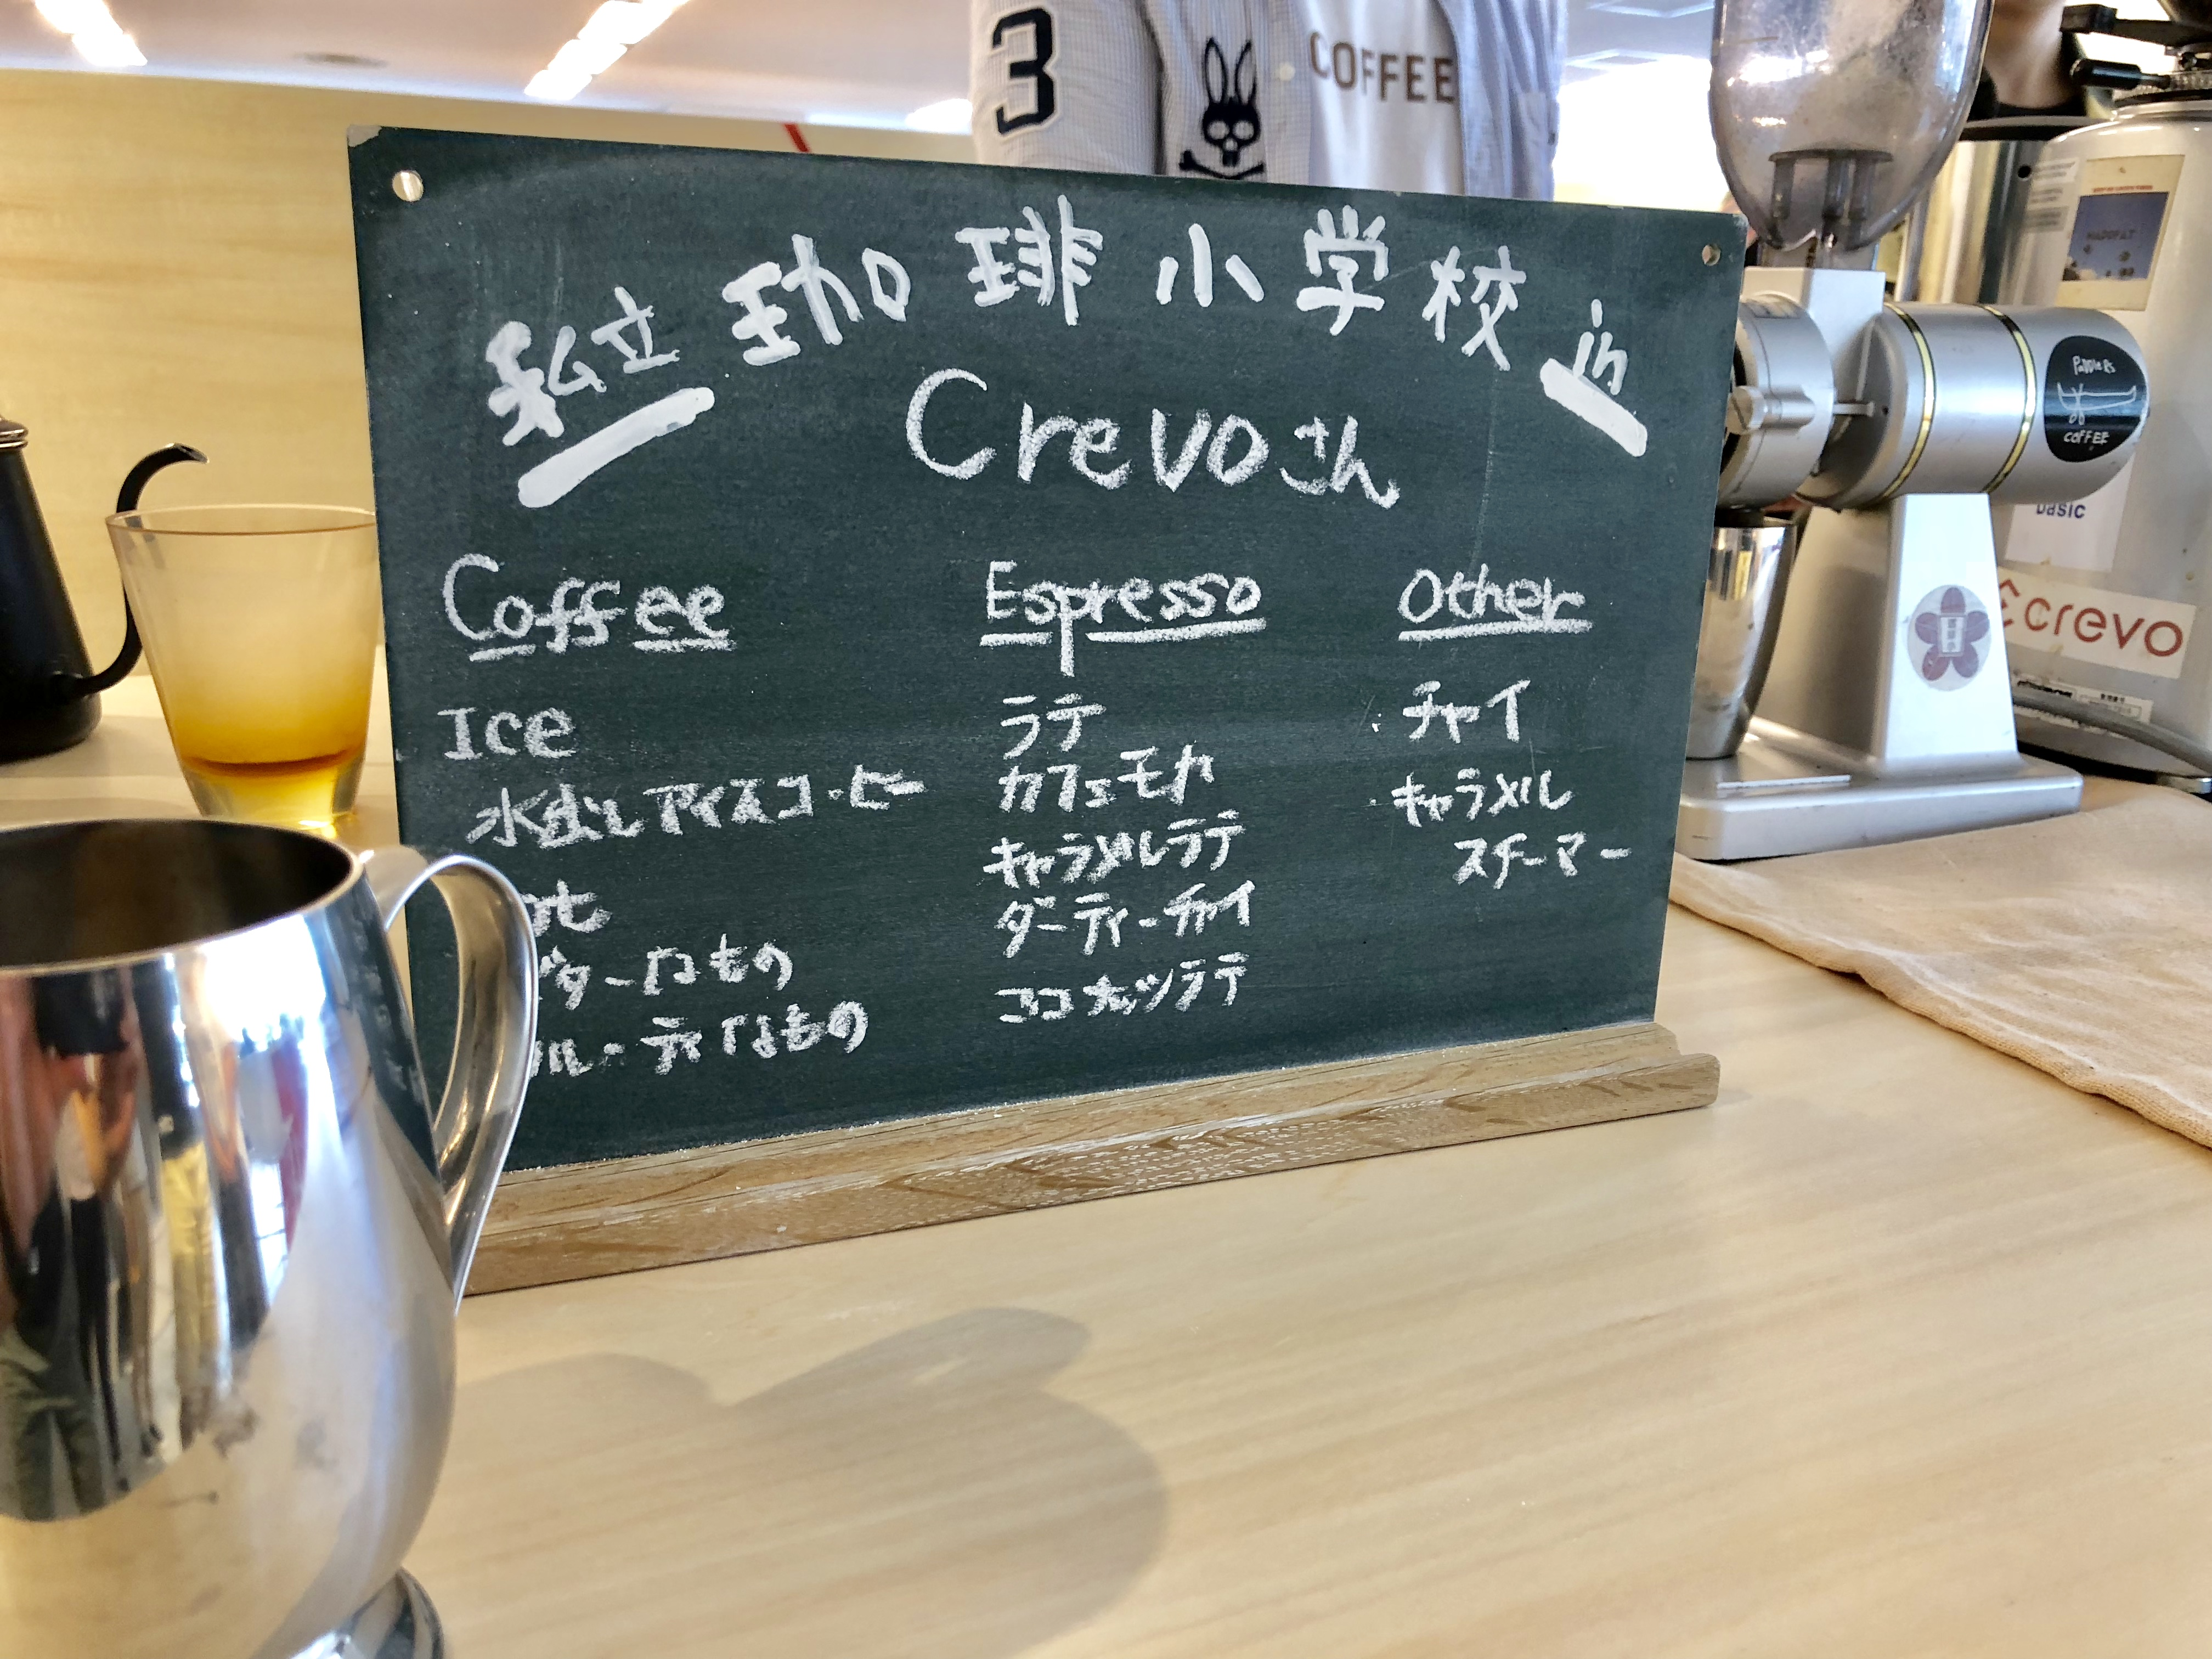 3
COFFEE
私立 珈琲小学校 in
Crevoさん
Coffee
Ice
水出しアイスコーヒー
ターなもの
ルーティなもの
Espresso
ラテ
カフェモカ
キャラメルラテ
ダーティーチャイ
ココナッツラテ
Other
・チャイ
・キャラメル
スチーマー
PADDLERS
COFFEE
basic
crevo